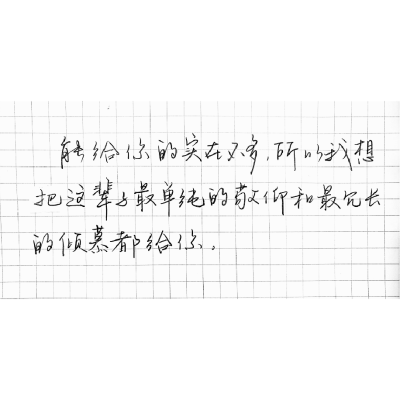 能给你的实在不多，所以我想
把这辈子最单纯的敬仰和最冗长
的倾慕都给你。